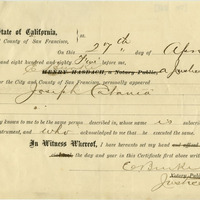 State of California,
County of San Francisco,
On this 27th day of Apr
and eight hundred and eighty Five before me,
HENRY HAGBACH, a Notary Public, a Justice
for the City and County of San Francisco, personally appeared
Joseph Catania
known to me to be the same person described in, whose is subscri
instrument, and who acknowledged to me that he executed the same.
In Witness Whereof, I have hereunto set my hand and official
the day and year in this Certificate first above writt
Notary Public
Justice